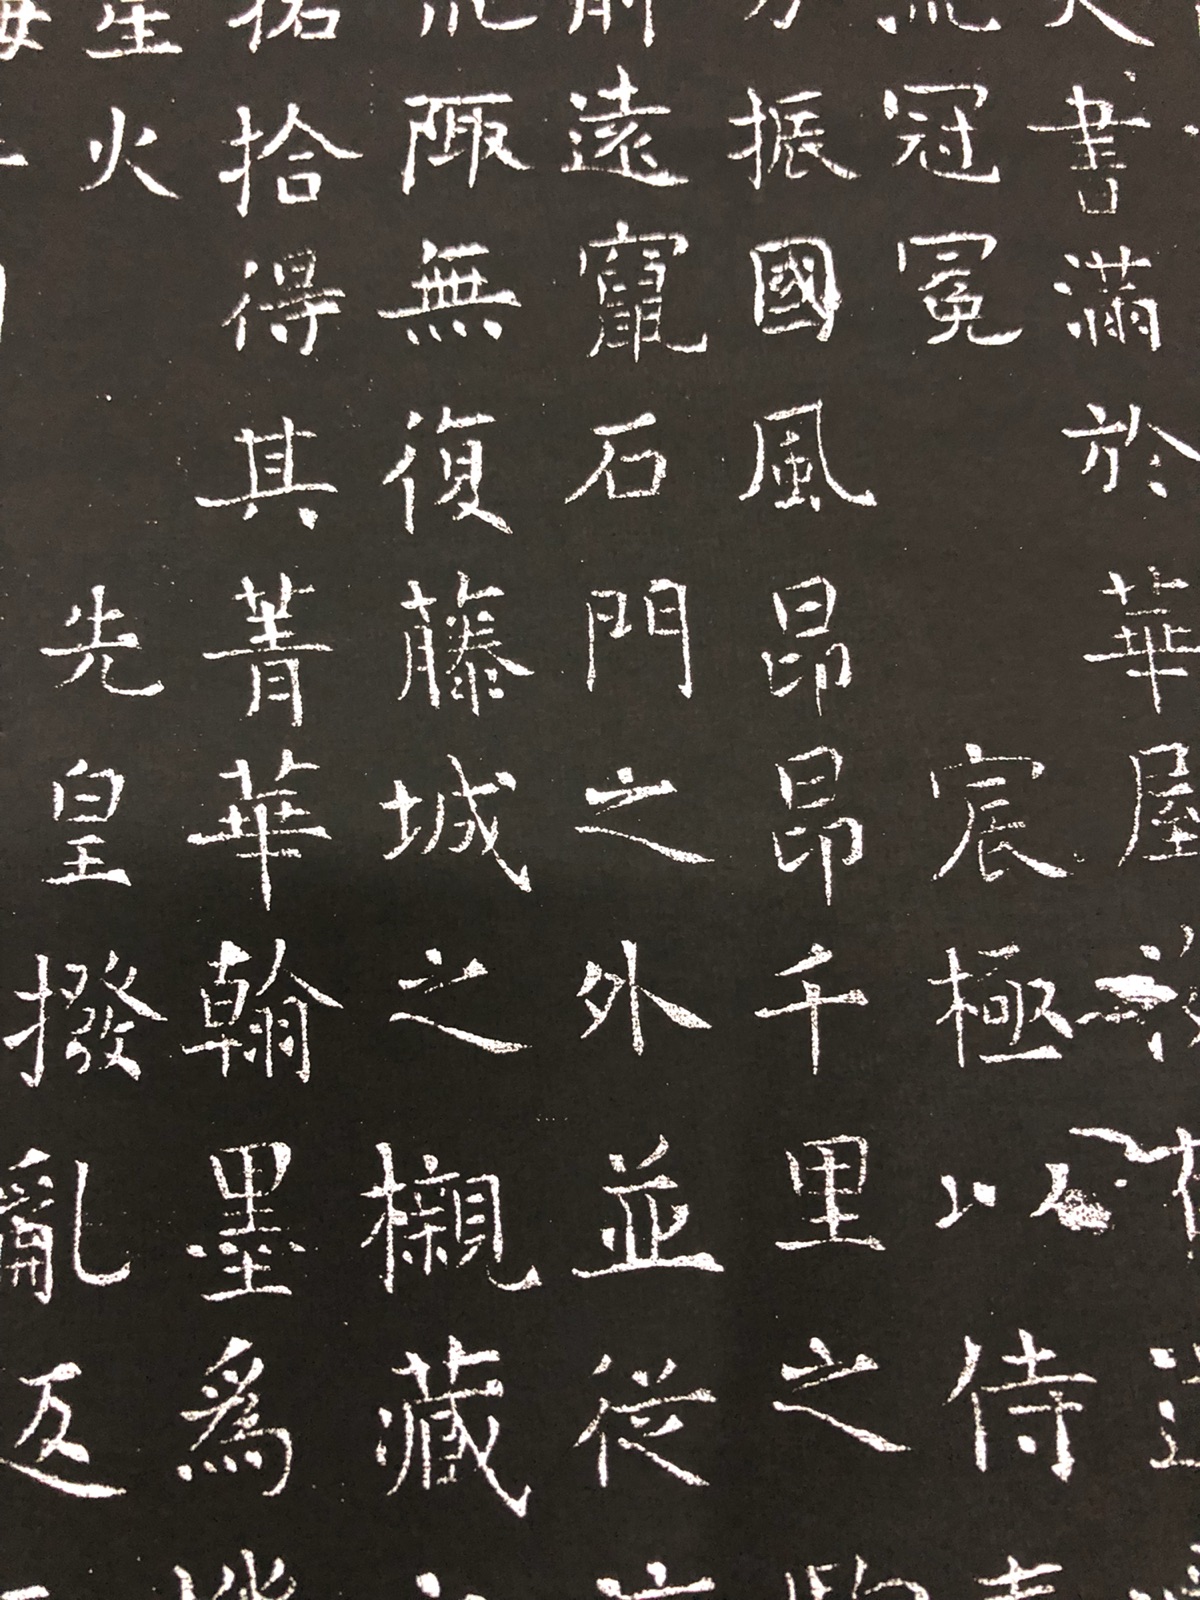 書滿於華屋
冠冕宸極以侍
振國風昂昂千里之
遠竄石門之外並從
陬無復藤城之櫬藏
拾得其菁華翰墨為
星火先皇撥亂返